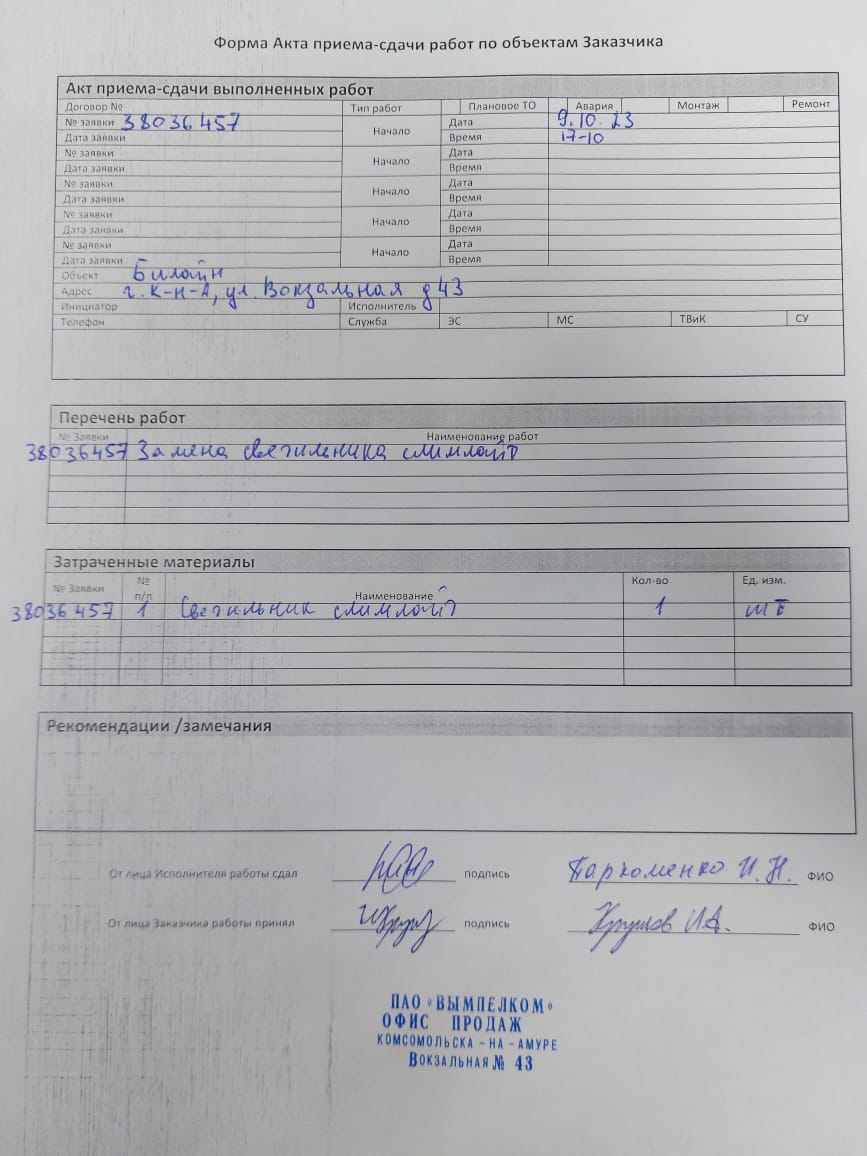 Форма Акта приема-сдачи работ по объектам Заказчика
Акт приема-сдачи выполненных работ
Договор № Тип работ Плановое ТО Авария Монтаж Ремонт
№ заявки 38036457 Начало Дата 9.10.23
Дата заявки Время 17-10
№ заявки Начало Дата
Дата заявки Время
№ заявки Начало Дата
Дата заявки Время
№ заявки Начало Дата
Дата заявки Время
№ заявки Начало Дата
Дата заявки Время
Объект Билайн
Адрес г. К-Н-А, ул. Вокзальная д 43
Инициатор Исполнитель
Телефон Служба ЭС МС ТВиК СУ
Перечень работ
№ Заявки Наименование работ
38036457 Замена светильника слимлайт
Затраченные материалы
№ Заявки № п/п Наименование Кол-во Ед. изм.
38036457 1 Светильник слимлайт 1 шт
Рекомендации /замечания
От лица Исполнителя работы сдал подпись Пархоменко И.Н. ФИО
От лица Заказчика работы принял подпись ФИО
ПАО «ВЫМПЕЛКОМ»
ОФИС ПРОДАЖ
КОМСОМОЛЬСКА - НА - АМУРЕ
ВОКЗАЛЬНАЯ № 43